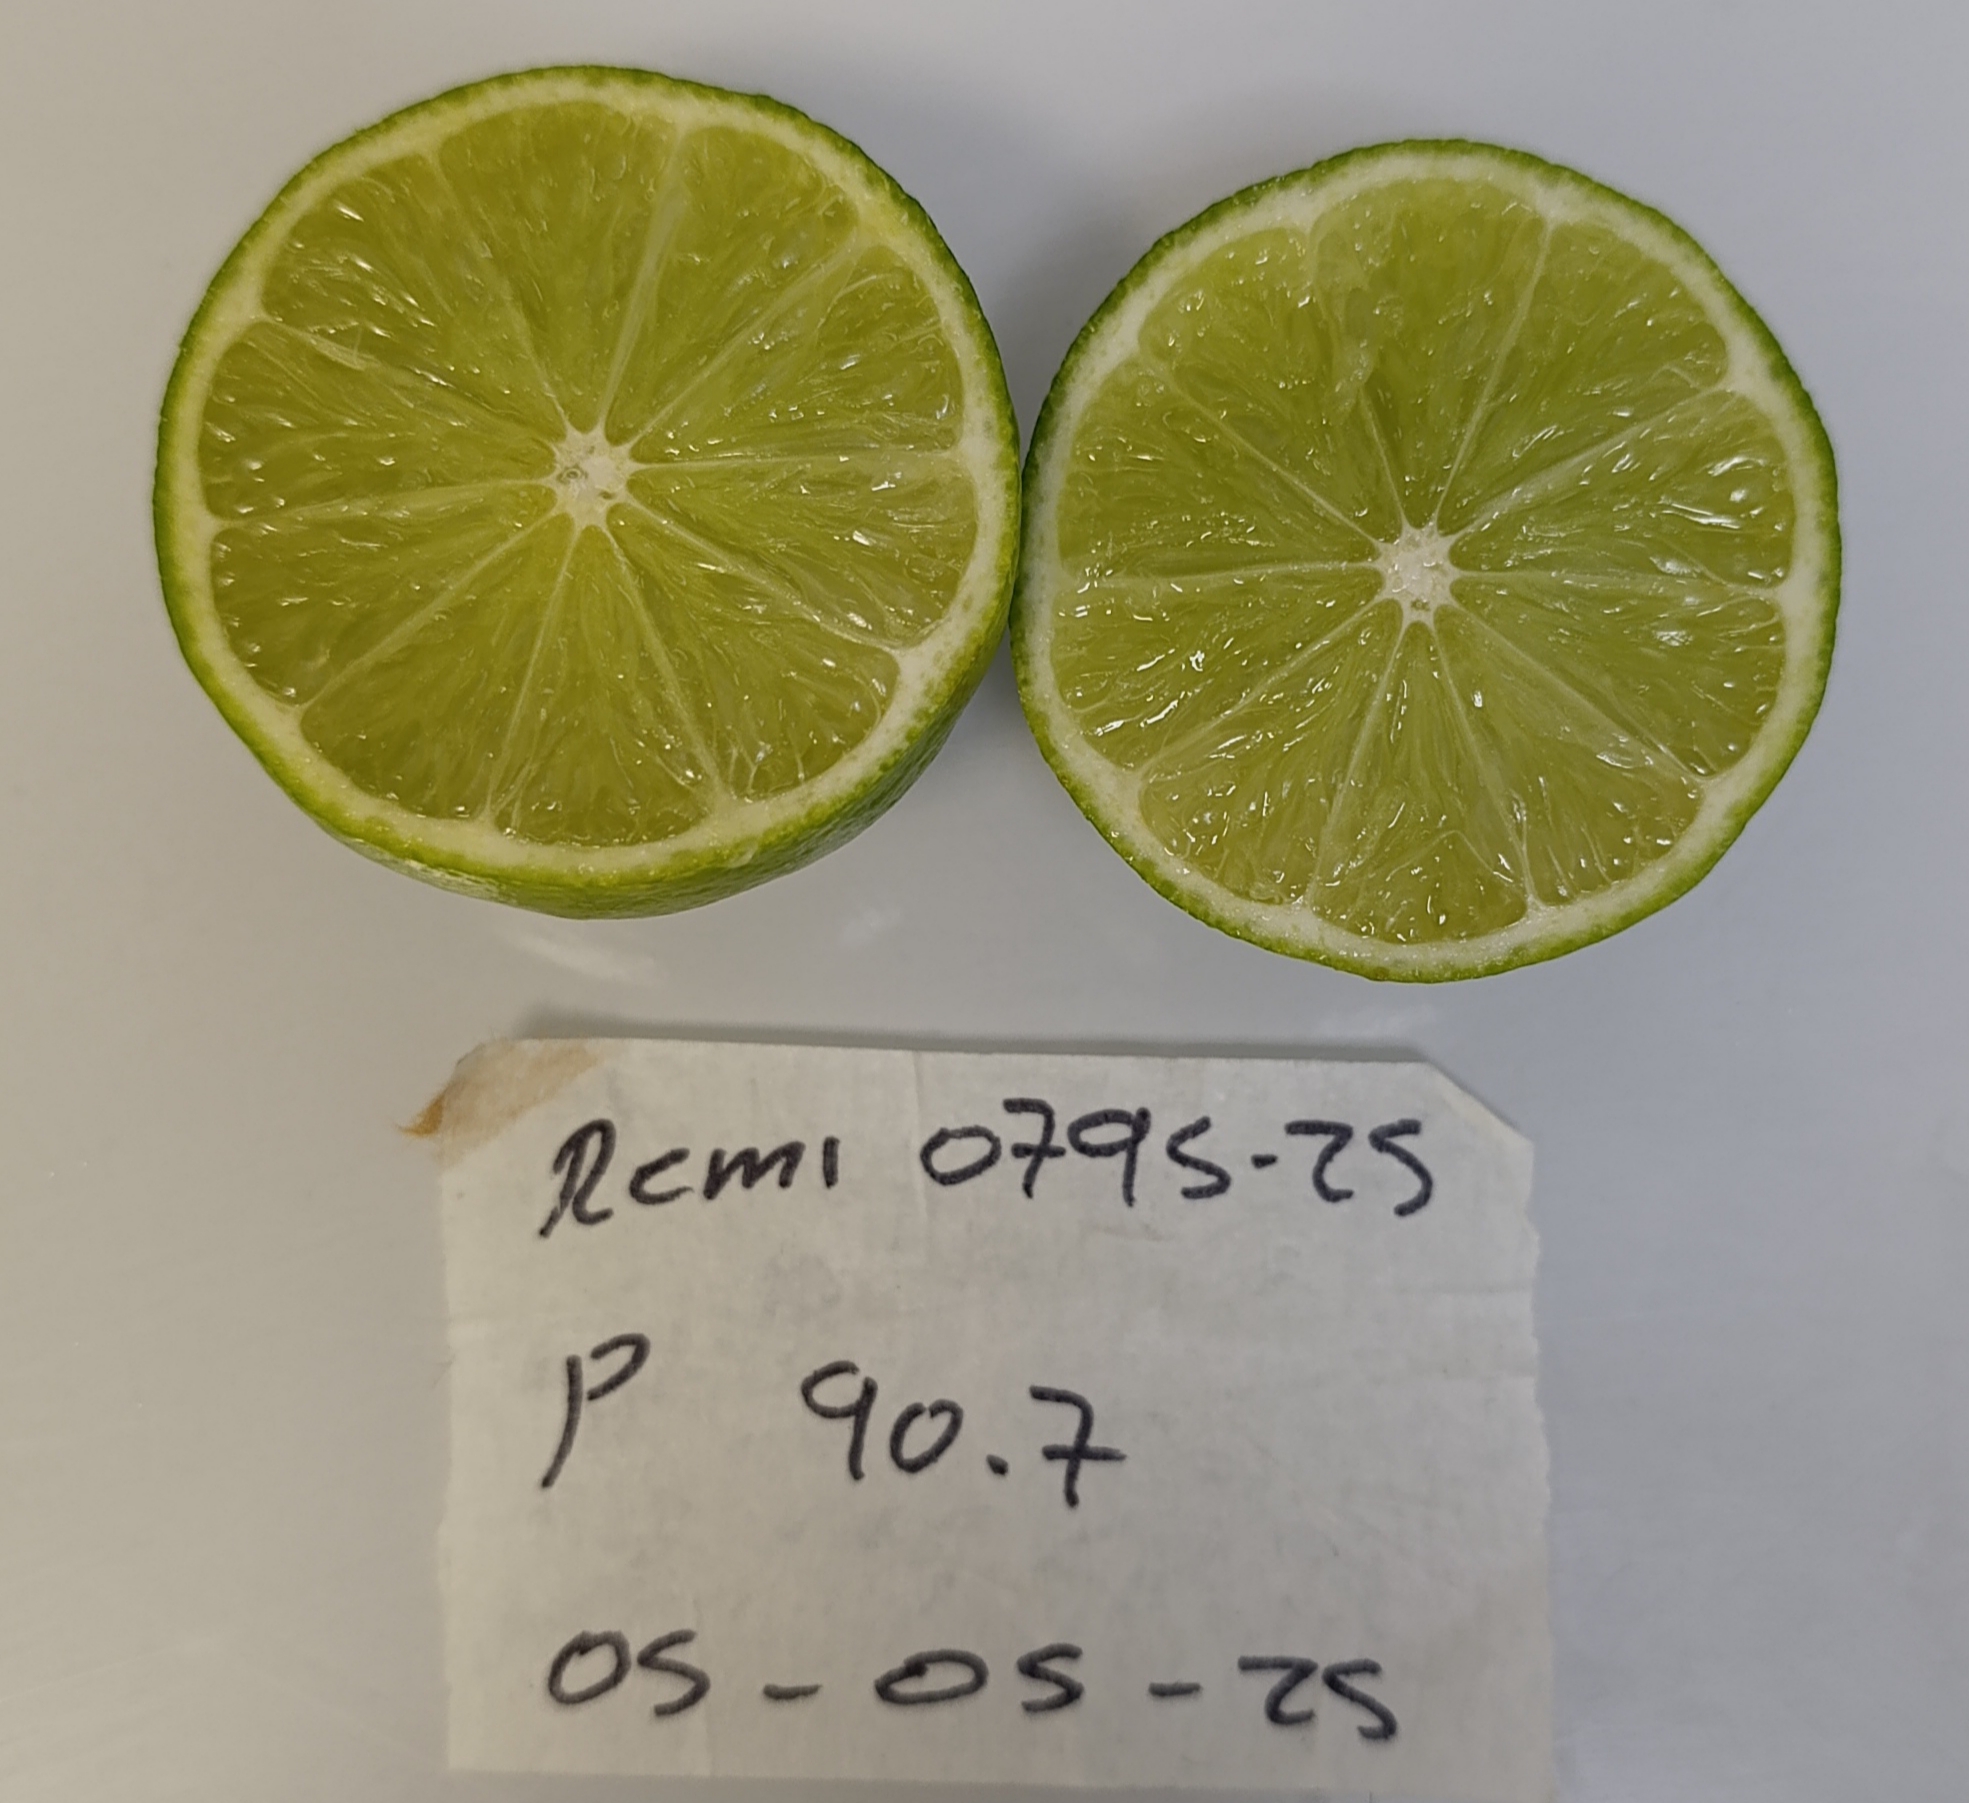 Remi 0795-25
P 90.7
05-05-25